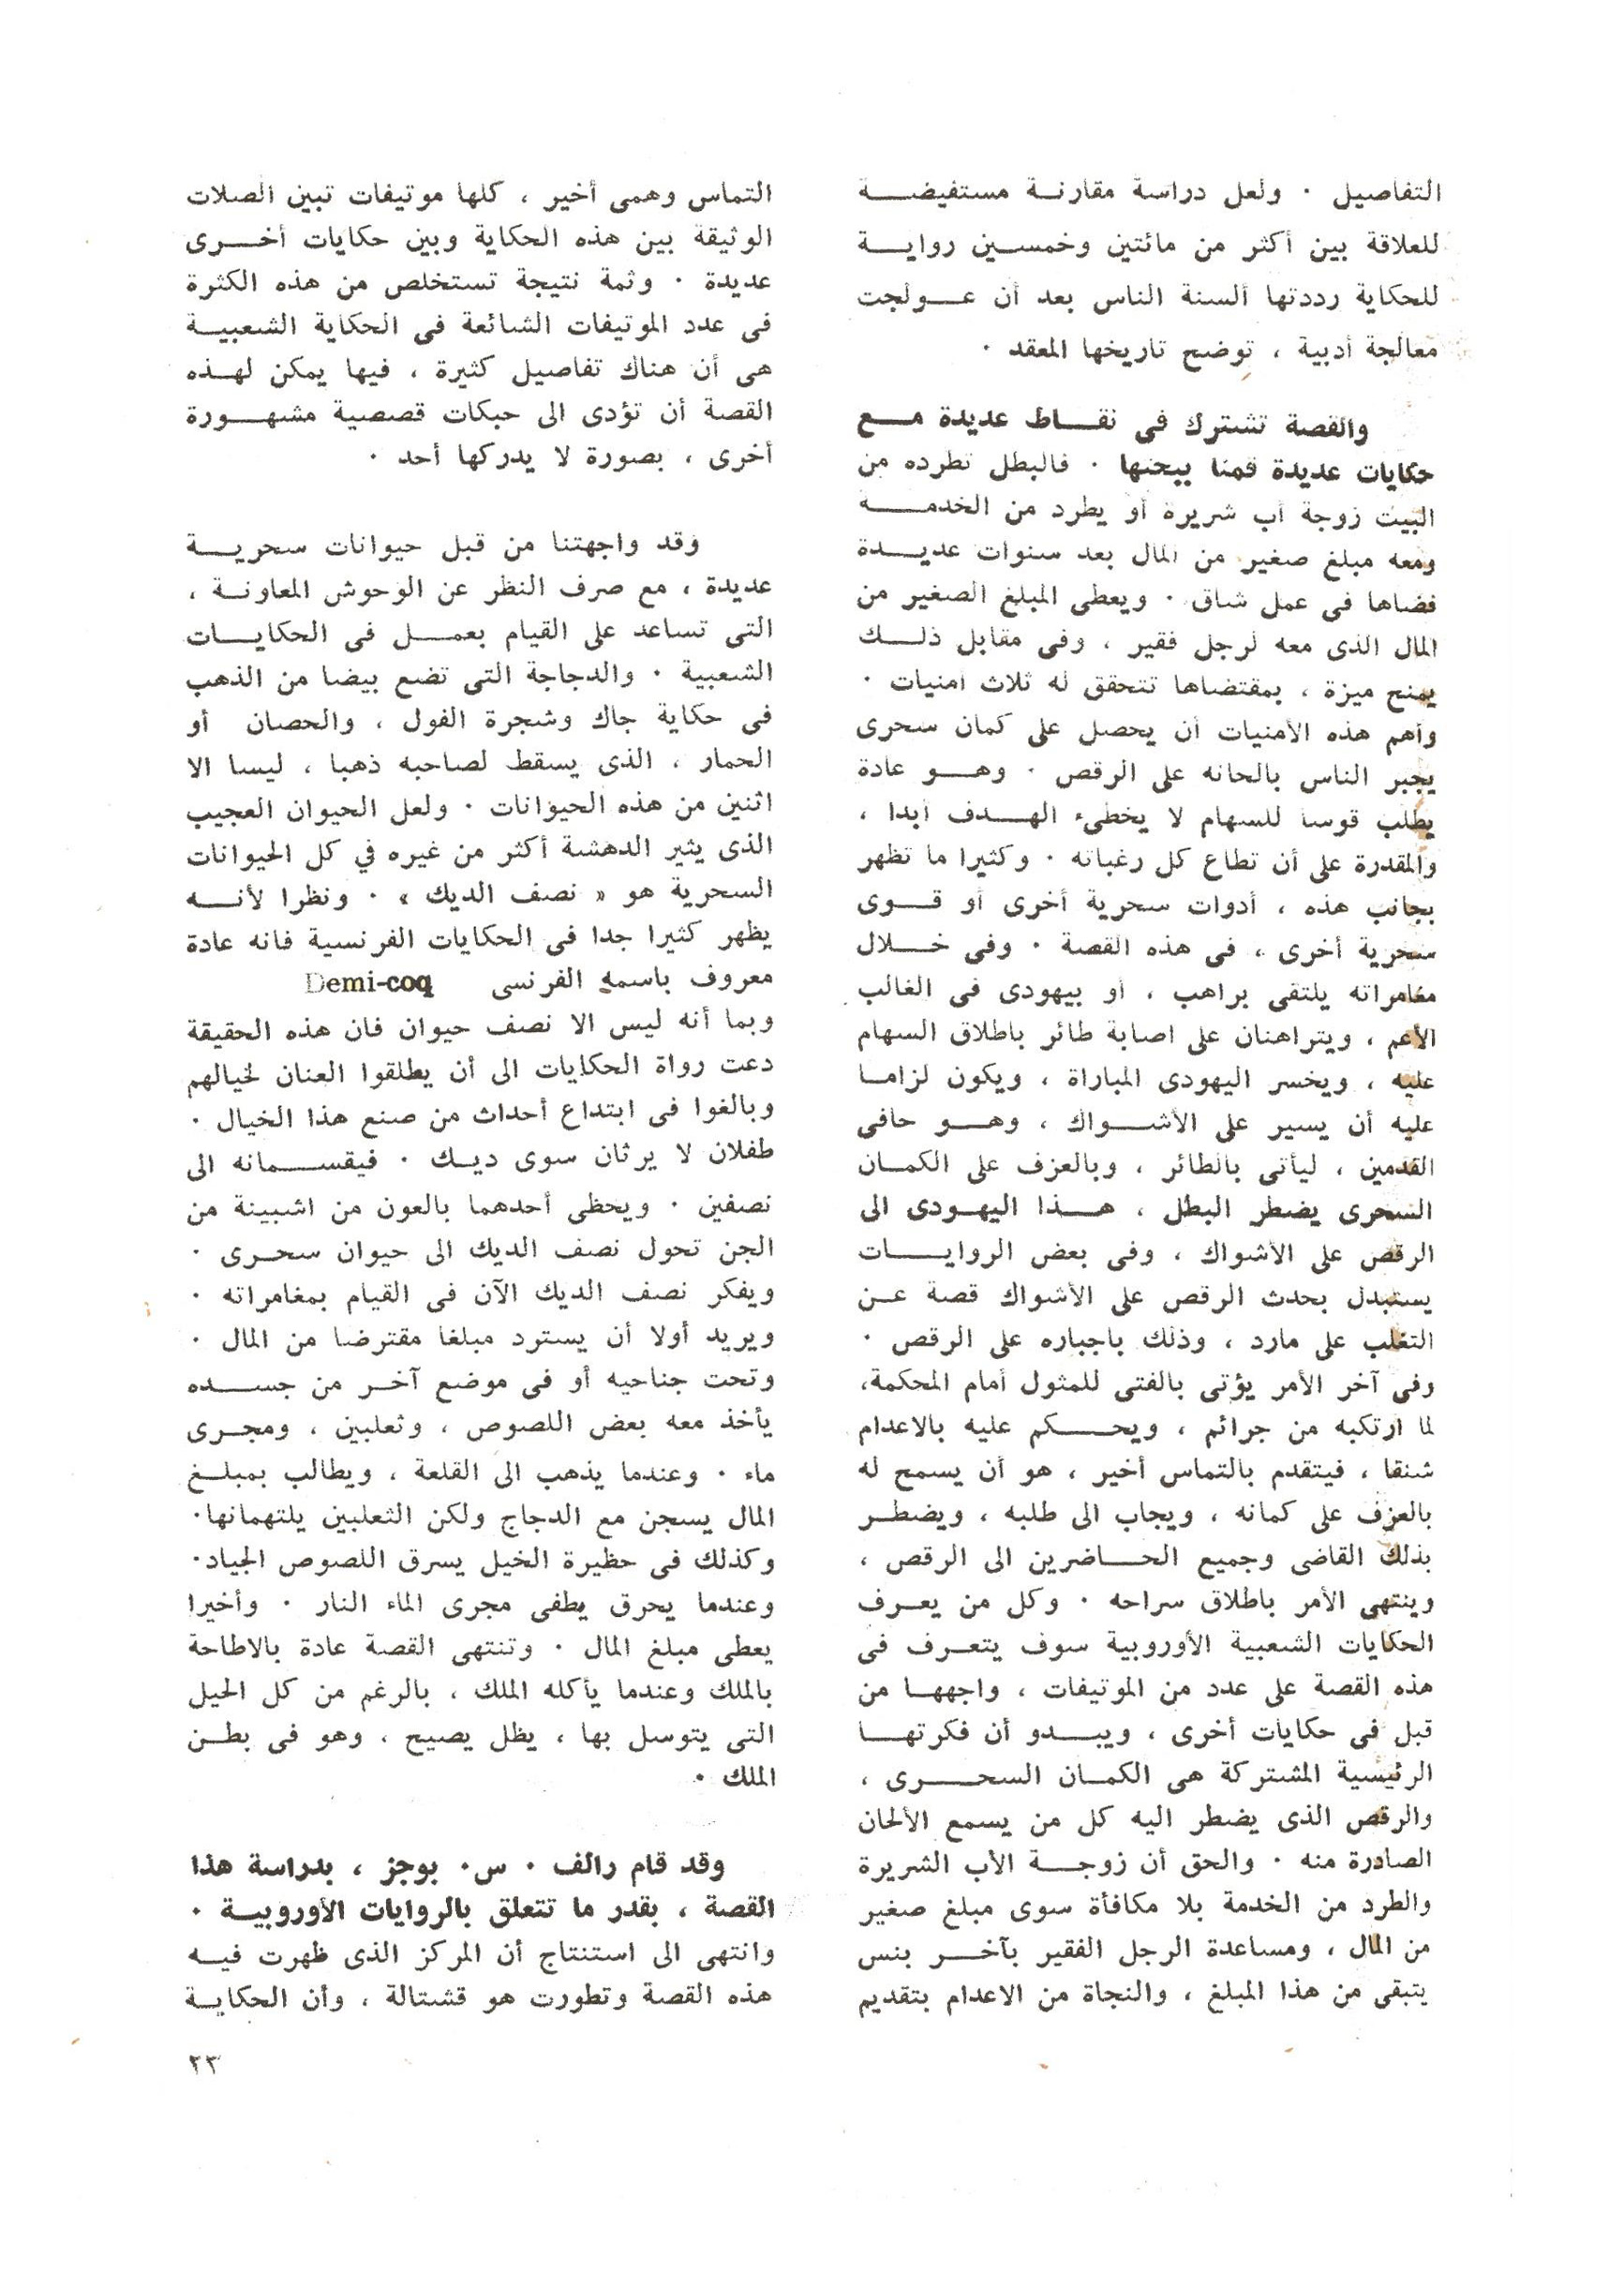 التفاصيل ٠ ولعل دراسة مقارنة مستفيضة
للعلاقة بين أكثر من مائتين وخمسين رواية
للحكاية رددتها ألسنة الناس بعد أن عولجت
معالجة أدبية ، توضح تاريخها المعقد ٠
والقصة تشترك فى نقاط عديدة مع
حكايات عديدة قمنا ببحثها ٠ فالبطل تطرده من
البيت زوجة أب شريرة أو يطرد من الخدمة
ومعه مبلغ صغير من المال بعد سنوات عديدة
قضاها فى عمل شاق ٠ ويعطى المبلغ الصغير من
المال الذى معه لرجل فقير ، وفى مقابل ذلك
يمنح ميزة ، بمقتضاها تتحقق له ثلاث أمنيات ٠
وأهم هذه الأمنيات أن يحصل على كمان سحرى
يجبر الناس بألحانه على الرقص ٠ وهو عادة
يطلب قوسا للسهام لا يخطىء الهدف أبدا ،
والمقدرة على أن تطاع كل رغباته ٠ وكثيرا ما تظهر
بجانب هذه ، أدوات سحرية أخرى أو قوى
سحرية أخرى ، فى هذه القصة ٠ وفى خلال
مغامراته يلتقى براهب ، أو بيهودى فى الغالب
الأعم ، ويتراهنان على اصابة طائر باطلاق السهام
عليه ، ويخسر اليهودى المباراة ، ويكون لزاما
عليه أن يسير على الأشواك ، وهو حافى
القدمين ، ليأتى بالطائر ، وبالعزف على الكمان
السحرى يضطر البطل ، هذا اليهودى الى
الرقص على الأشواك ، وفى بعض الروايات
يستبدل بحدث الرقص على الأشواك قصة عن
التغلب على مارد ، وذلك باجباره على الرقص ٠
وفى آخر الأمر يؤتى بالفتى للمثول أمام المحكمة،
لما ارتكبه من جرائم ، ويحكم عليه بالاعدام
شنقا ، فيتقدم بالتماس أخير ، هو أن يسمح له
بالعزف على كمانه ، ويجاب الى طلبه ، ويضطر
بذلك القاضى وجميع الحاضرين الى الرقص ،
وينتهى الأمر باطلاق سراحه ٠ وكل من يعرف
الحكايات الشعبية الأوروبية سوف يتعرف فى
هذه القصة على عدد من الموتيفات ، واجهها من
قبل فى حكايات أخرى ، ويبدو أن فكرتها
الرئيسية المشتركة هى الكمان السحرى ،
والرقص الذى يضطر اليه كل من يسمع الألحان
الصادرة منه ٠ والحق أن زوجة الأب الشريرة
والطرد من الخدمة بلا مكافأة سوى مبلغ صغير
من المال ، ومساعدة الرجل الفقير بآخر بنس
يتبقى من هذا المبلغ ، والنجاة من الاعدام بتقديم
التماس وهمى أخير ، كلها موتيفات تبين الصلات
الوثيقة بين هذه الحكاية وبين حكايات أخرى
عديدة ٠ وثمة نتيجة تستخلص من هذه الكثرة
فى عدد الموتيفات الشائعة فى الحكاية الشعبية
هى أن هناك تفاصيل كثيرة ، فيها يمكن لهذه
القصة أن تؤدى الى حبكات قصصية مشهورة
أخرى ، بصورة لا يدركها أحد ٠
وقد واجهتنا من قبل حيوانات سحرية
عديدة ، مع صرف النظر عن الوحوش المعاونة ،
التى تساعد على القيام بعمل فى الحكايات
الشعبية ٠ والدجاجة التى تضع بيضا من الذهب
فى حكاية جاك وشجرة الفول ، والحصان أو
الحمار ، الذى يسقط لصاحبه ذهبا ، ليسا الا
اثنين من هذه الحيوانات ٠ ولعل الحيوان العجيب
الذى يثير الدهشة أكثر من غيره في كل الحيوانات
السحرية هو « نصف الديك » ٠ ونظرا لأنه
يظهر كثيرا جدا فى الحكايات الفرنسية فانه عادة
معروف باسمه الفرنسى Demi-coq
وبما أنه ليس الا نصف حيوان فان هذه الحقيقة
دعت رواة الحكايات الى أن يطلقوا العنان لخيالهم
وبالغوا فى ابتداع أحداث من صنع هذا الخيال ٠
طفلان لا يرثان سوى ديك ٠ فيقسمانه الى
نصفين ٠ ويحظى أحدهما بالعون من اشبينة من
الجن تحول نصف الديك الى حيوان سحرى ٠
ويفكر نصف الديك الآن فى القيام بمغامراته ٠
ويريد أولا أن يسترد مبلغا مقترضا من المال ٠
وتحت جناحيه أو فى موضع آخر من جسده
يأخذ معه بعض اللصوص ، وثعلبين ، ومجرى
ماء ٠ وعندما يذهب الى القلعة ، ويطالب بمبلغ
المال يسجن مع الدجاج ولكن الثعلبين يلتهمانها٠
وكذلك فى حظيرة الخيل يسرق اللصوص الجياد٠
وعندما يحرق يطفى مجرى الماء النار ٠ وأخيرا
يعطى مبلغ المال ٠ وتنتهى القصة عادة بالاطاحة
بالملك وعندما يأكله الملك ، بالرغم من كل الحيل
التى يتوسل بها ، يظل يصيح ، وهو فى بطن
الملك ٠
وقد قام رالف ٠ س٠ بوجز ، بدراسة هذا
القصة ، بقدر ما تتعلق بالروايات الأوروبية ٠
وانتهى الى استنتاج أن المركز الذى ظهرت فيه
هذه القصة وتطورت هو قشتالة ، وأن الحكاية
٢٣